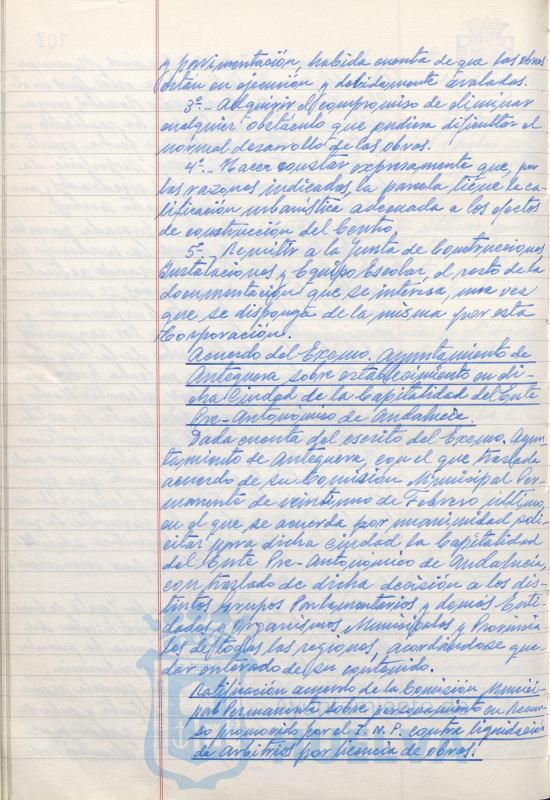 y pavimentación, habida cuenta de que las obras
están en ejecución y debidamente avaladas.
3º.- Adquirir el compromiso de eliminar
cualquier obstáculo que pudiera dificultar el
normal desarrollo de las obras.
4º.- Hacer constar expresamente que, por
las razones indicadas, la parcela tiene la ca-
lificación urbanística adecuada a los efectos
de construcción del Centro.
5º.- Remitir a la Junta de Construcciones,
Instalaciones y Equipo Escolar, el resto de la
documentación que se interesa, una vez
que se disponga de la misma por esta
Corporación.
Acuerdo del Excmo. Ayuntamiento de
Antequera sobre establecimiento en di-
cha Ciudad de la Capitalidad del Ente
Pre-Autonómico de Andalucía.
Dada cuenta del escrito del Excmo. Ayun-
tamiento de Antequera, con el que traslada
acuerdo de su Comisión Municipal Per-
manente de veintiuno de Febrero último,
en el que se acuerda por unanimidad soli-
citar para dicha ciudad la Capitalidad
del Ente Pre-Autonómico de Andalucía,
con traslado de dicha decisión a los dis-
tintos Grupos Parlamentarios y demás Enti-
dades y Organismos, Municipales y Provincia-
les de todas las regiones, acordándose que-
dar enterado de su contenido.
Ratificación acuerdo de la Comisión Munici-
pal Permanente sobre personamiento en Recur-
so promovido por el I.N.P. contra liquidación
de arbitrios por licencia de obras.